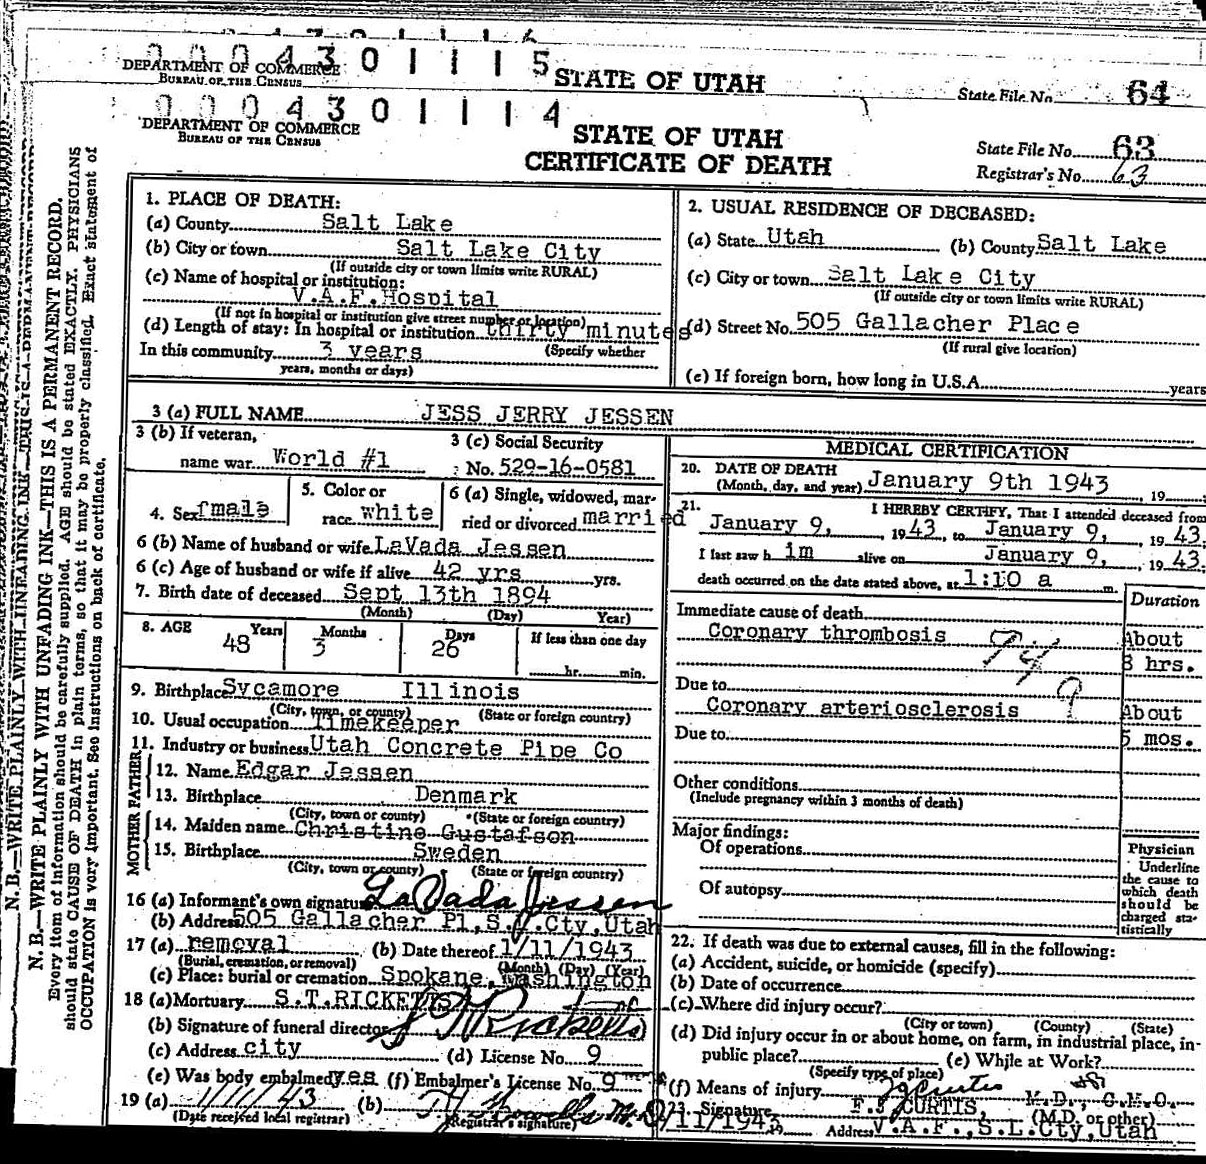 0004301115
DEPARTMENT OF COMMERCE
BUREAU OF THE CENSUS
STATE OF UTAH
State File No. 64
0004301114
DEPARTMENT OF COMMERCE
BUREAU OF THE CENSUS
STATE OF UTAH
CERTIFICATE OF DEATH
State File No. 63
Registrar's No. 63
N. B.—WRITE PLAINLY WITH UNFADING INK—THIS IS A PERMANENT RECORD.
Every item of information should be carefully supplied. AGE should be stated EXACTLY. PHYSICIANS
should state CAUSE OF DEATH in plain terms, so that it may be properly classified. Exact statement of
OCCUPATION is very important. See instructions on back of certificate.
1. PLACE OF DEATH:
(a) County Salt Lake
(b) City or town Salt Lake City
(If outside city or town limits write RURAL)
(c) Name of hospital or institution:
V.A.F.Hospital
(If not in hospital or institution give street number or location)
(d) Length of stay: In hospital or institution thirty minutes
(Specify whether
In this community 3 years
years, months or days)
2. USUAL RESIDENCE OF DECEASED:
(a) State Utah (b) County Salt Lake
(c) City or town Salt Lake City
(If outside city or town limits write RURAL)
(d) Street No. 505 Gallacher Place
(If rural give location)
(e) If foreign born, how long in U.S.A. years
3 (a) FULL NAME JESS JERRY JESSEN
3 (b) If veteran,
name war World #1
3 (c) Social Security
No. 529-16-0581
4. Sex male
5. Color or
race white
6 (a) Single, widowed, mar-
ried or divorced married
6 (b) Name of husband or wife LaVada Jessen
6 (c) Age of husband or wife if alive 42 yrs yrs.
7. Birth date of deceased Sept 13th 1894
(Month) (Day) Year)
8. AGE Years Months Days If less than one day
48 3 26 hr. min.
9. Birthplace Sycamore Illinois
(City, town, or county) (State or foreign country)
10. Usual occupation Timekeeper
11. Industry or business Utah Concrete Pipe Co
FATHER
12. Name Edgar Jessen
13. Birthplace Denmark
(City, town or county) (State or foreign country)
MOTHER
14. Maiden name Christine Gustafson
15. Birthplace Sweden
(City, town or county) (State or foreign country)
16 (a) Informant's own signature LaVada Jessen
(b) Address 505 Gallacher Pl,S.L.Cty,Utah
17 (a) removal (b) Date thereof 1/11/1943
(Burial, cremation, or removal) (Month) (Day) (Year)
(c) Place: burial or cremation Spokane, Washington
18 (a) Mortuary S.T.RICKETTS
(b) Signature of funeral director S T Ricketts
(c) Address city (d) License No. 9
(e) Was body embalmed yes (f) Embalmer's License No. 9
19 (a) 1/11/43 (b)
(Date received local registrar) (Registrar's signature)
MEDICAL CERTIFICATION
20. DATE OF DEATH
(Month, day, and year) January 9th 1943, 19
21. I HEREBY CERTIFY, That I attended deceased from
January 9, 1943, to January 9, 1943.
I last saw h im alive on January 9, 1943.
death occurred on the date stated above, at 1:10 a m.
Duration
Immediate cause of death
Coronary thrombosis About
3 hrs.
94
Due to
Coronary arteriosclerosis About
Due to 5 mos.
Other conditions
(Include pregnancy within 3 months of death)
Major findings:
Of operations
Of autopsy
Physician
Underline
the cause to
which death
should be
charged sta-
tistically
22. If death was due to external causes, fill in the following:
(a) Accident, suicide, or homicide (specify)
(b) Date of occurrence
(c) Where did injury occur?
(City or town) (County) (State)
(d) Did injury occur in or about home, on farm, in industrial place, in-
public place? (e) While at Work?
(Specify type of place)
(f) Means of injury
23. Signature F.J CURTIS, M.D., C.M.O.
(M.D. or other)
1/11/1943
Address V.A.F.,S.L.Cty,Utah